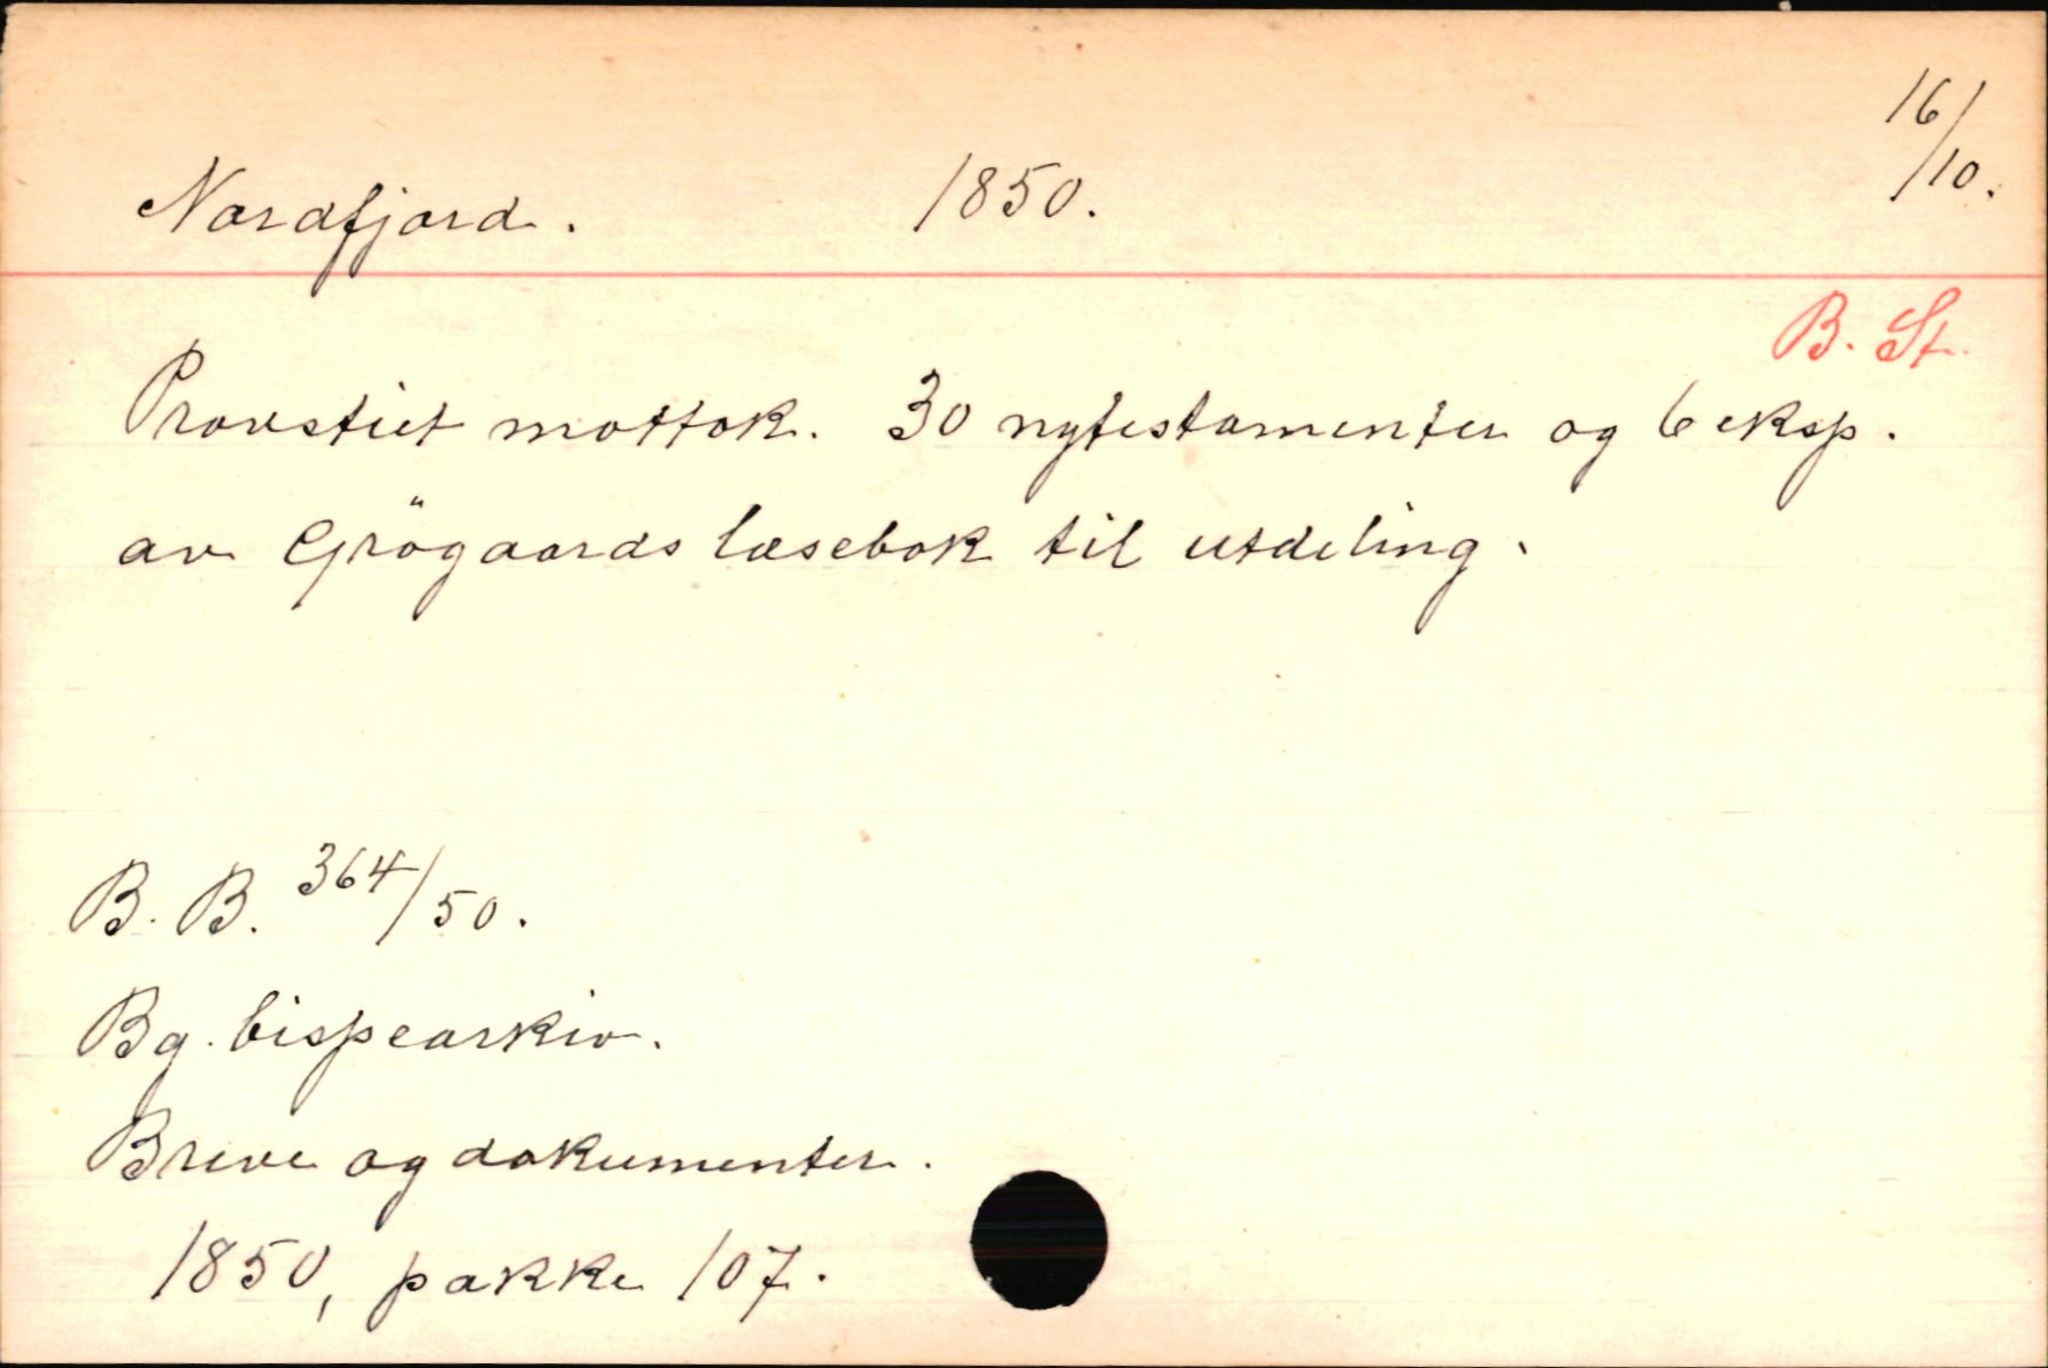 Nordfjord. 1850. 16/10.
B. St.
Provstiet mottok. 30 nytestamenter og 6 eksp.
av Grögaards læsebok til utdeling.
B. B. 364/50.
Bg. bispearkiv.
Breve og dokumenter.
1850, pakke 107.